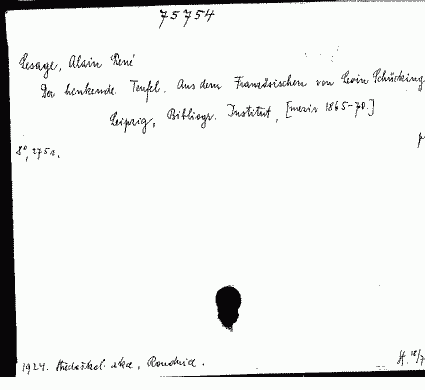 75754
Lesage, Alain René
Der hinkende Teufel. Aus dem Französischen von Levin Schücking
Leipzig, Bibliogr. Institut, [mezi 1865-70.]
8°, 275 s.
1924. Středoškol. akad., Roudnice.
H. 18/7